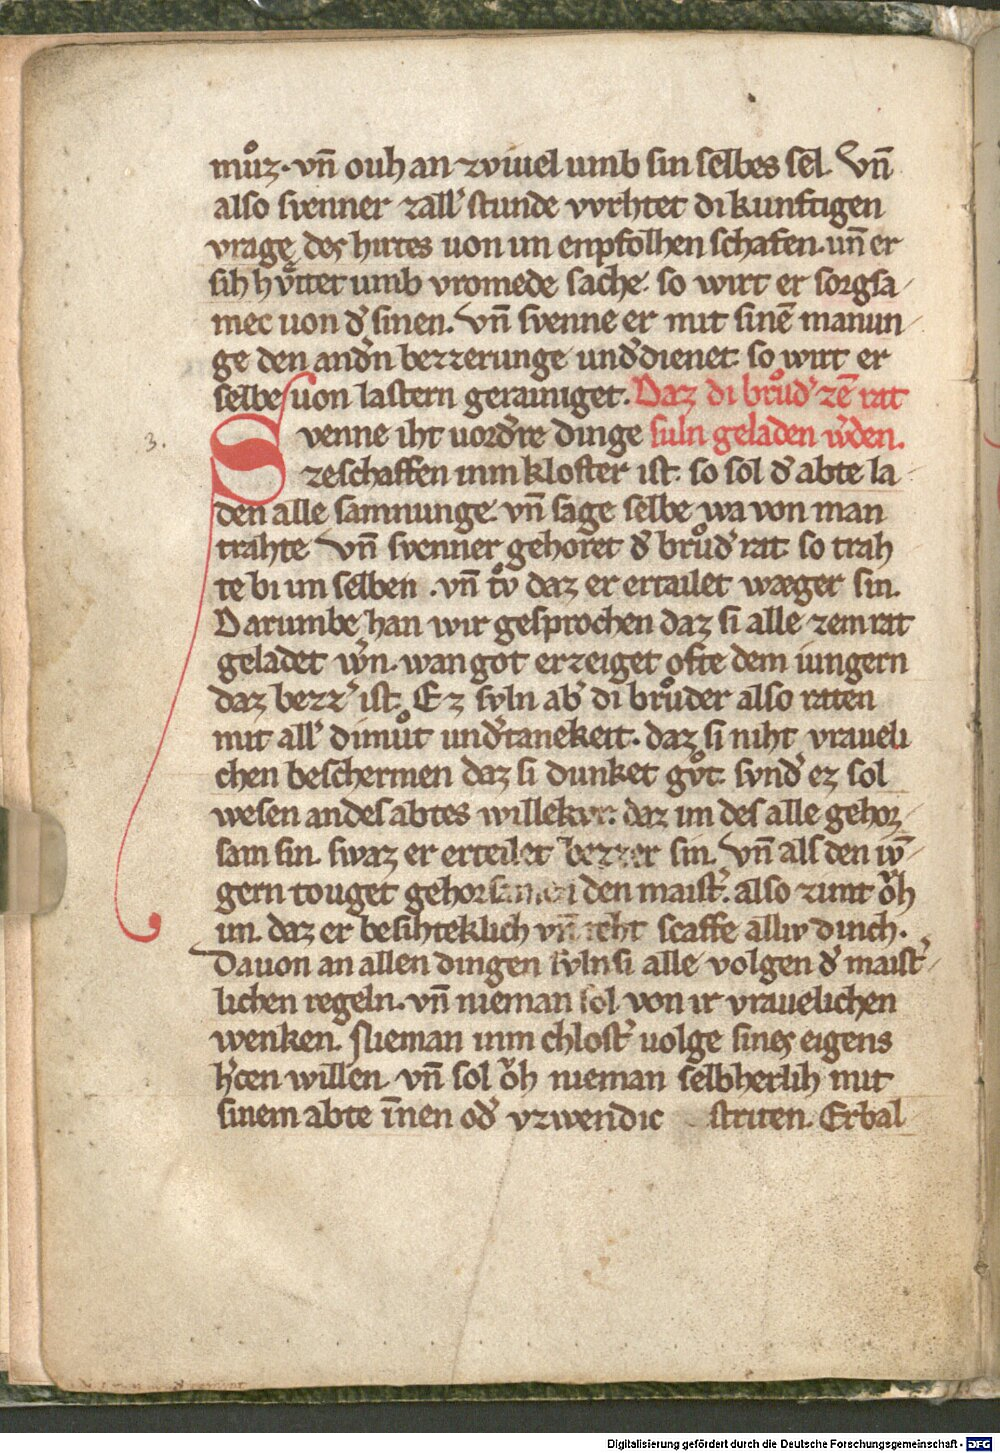 muͦz. vn̄ ouh an zviuel umb sin selbes sel. Vn̄
also svenner zall' stunde vvrhtet di kunftigen
vrage des hirtes uon un enpfolhen schafen. un̄ er
sih hv̊ttet umb vromede sache. so wirt er sorgsa/
mec uon d' sinen. Vn̄ svenne er mit sinē manun/
ge den and'n bezzerunge und'dienet. so wirt er
selbe uon lastern gerainiget. Daz di bruͦd' zē rat
3.
Svenne iht uord're dinge suln geladen w'den.
zeschaffen inm kloster ist. so sol d' abte la/
den alle samnunge. vn̄ sage selbe wa von man
trahte. Vn̄ svenner gehoret d' bruͦd' rat. so trah
te bi im selben. vn̄ tv̊ daz er ertailet wæger sin.
Darumbe han wir gesprochen daz si alle zem rat
geladet w'n. wan got erzeiget ofte dem iungern
daz bezz' ist. Ez svln ab' di bruͦder also raten
mit all' dimuͦt und'tanekeit. daz si niht vraueli
chen beschermen daz si dunket gv̊t. svnd' ez sol
wesen an des abtes willekvr. daz im des alle gehor/
sam sin. swaz er erteilet bezzer sin. Vn̄ als den iv̄/
gern touget gehorsamen den maist'. also zimt oͮh
im. daz er besihteklich vn̄ reht scaffe alliv dinch.
Dauon an allen dingen svln si alle volgen d' maist'/
lichen regeln. vn̄ nieman sol von ir vrauelichen
wenken. Nieman inm chlost' uolge sines eigens
h'cen willen. vn̄ sol oͮh nieman selbherlih mit
sinem abte īnen od' vzwendic striten. Erbal/
Digitalisierung gefördert durch die Deutsche Forschungsgemeinschaft - DFG